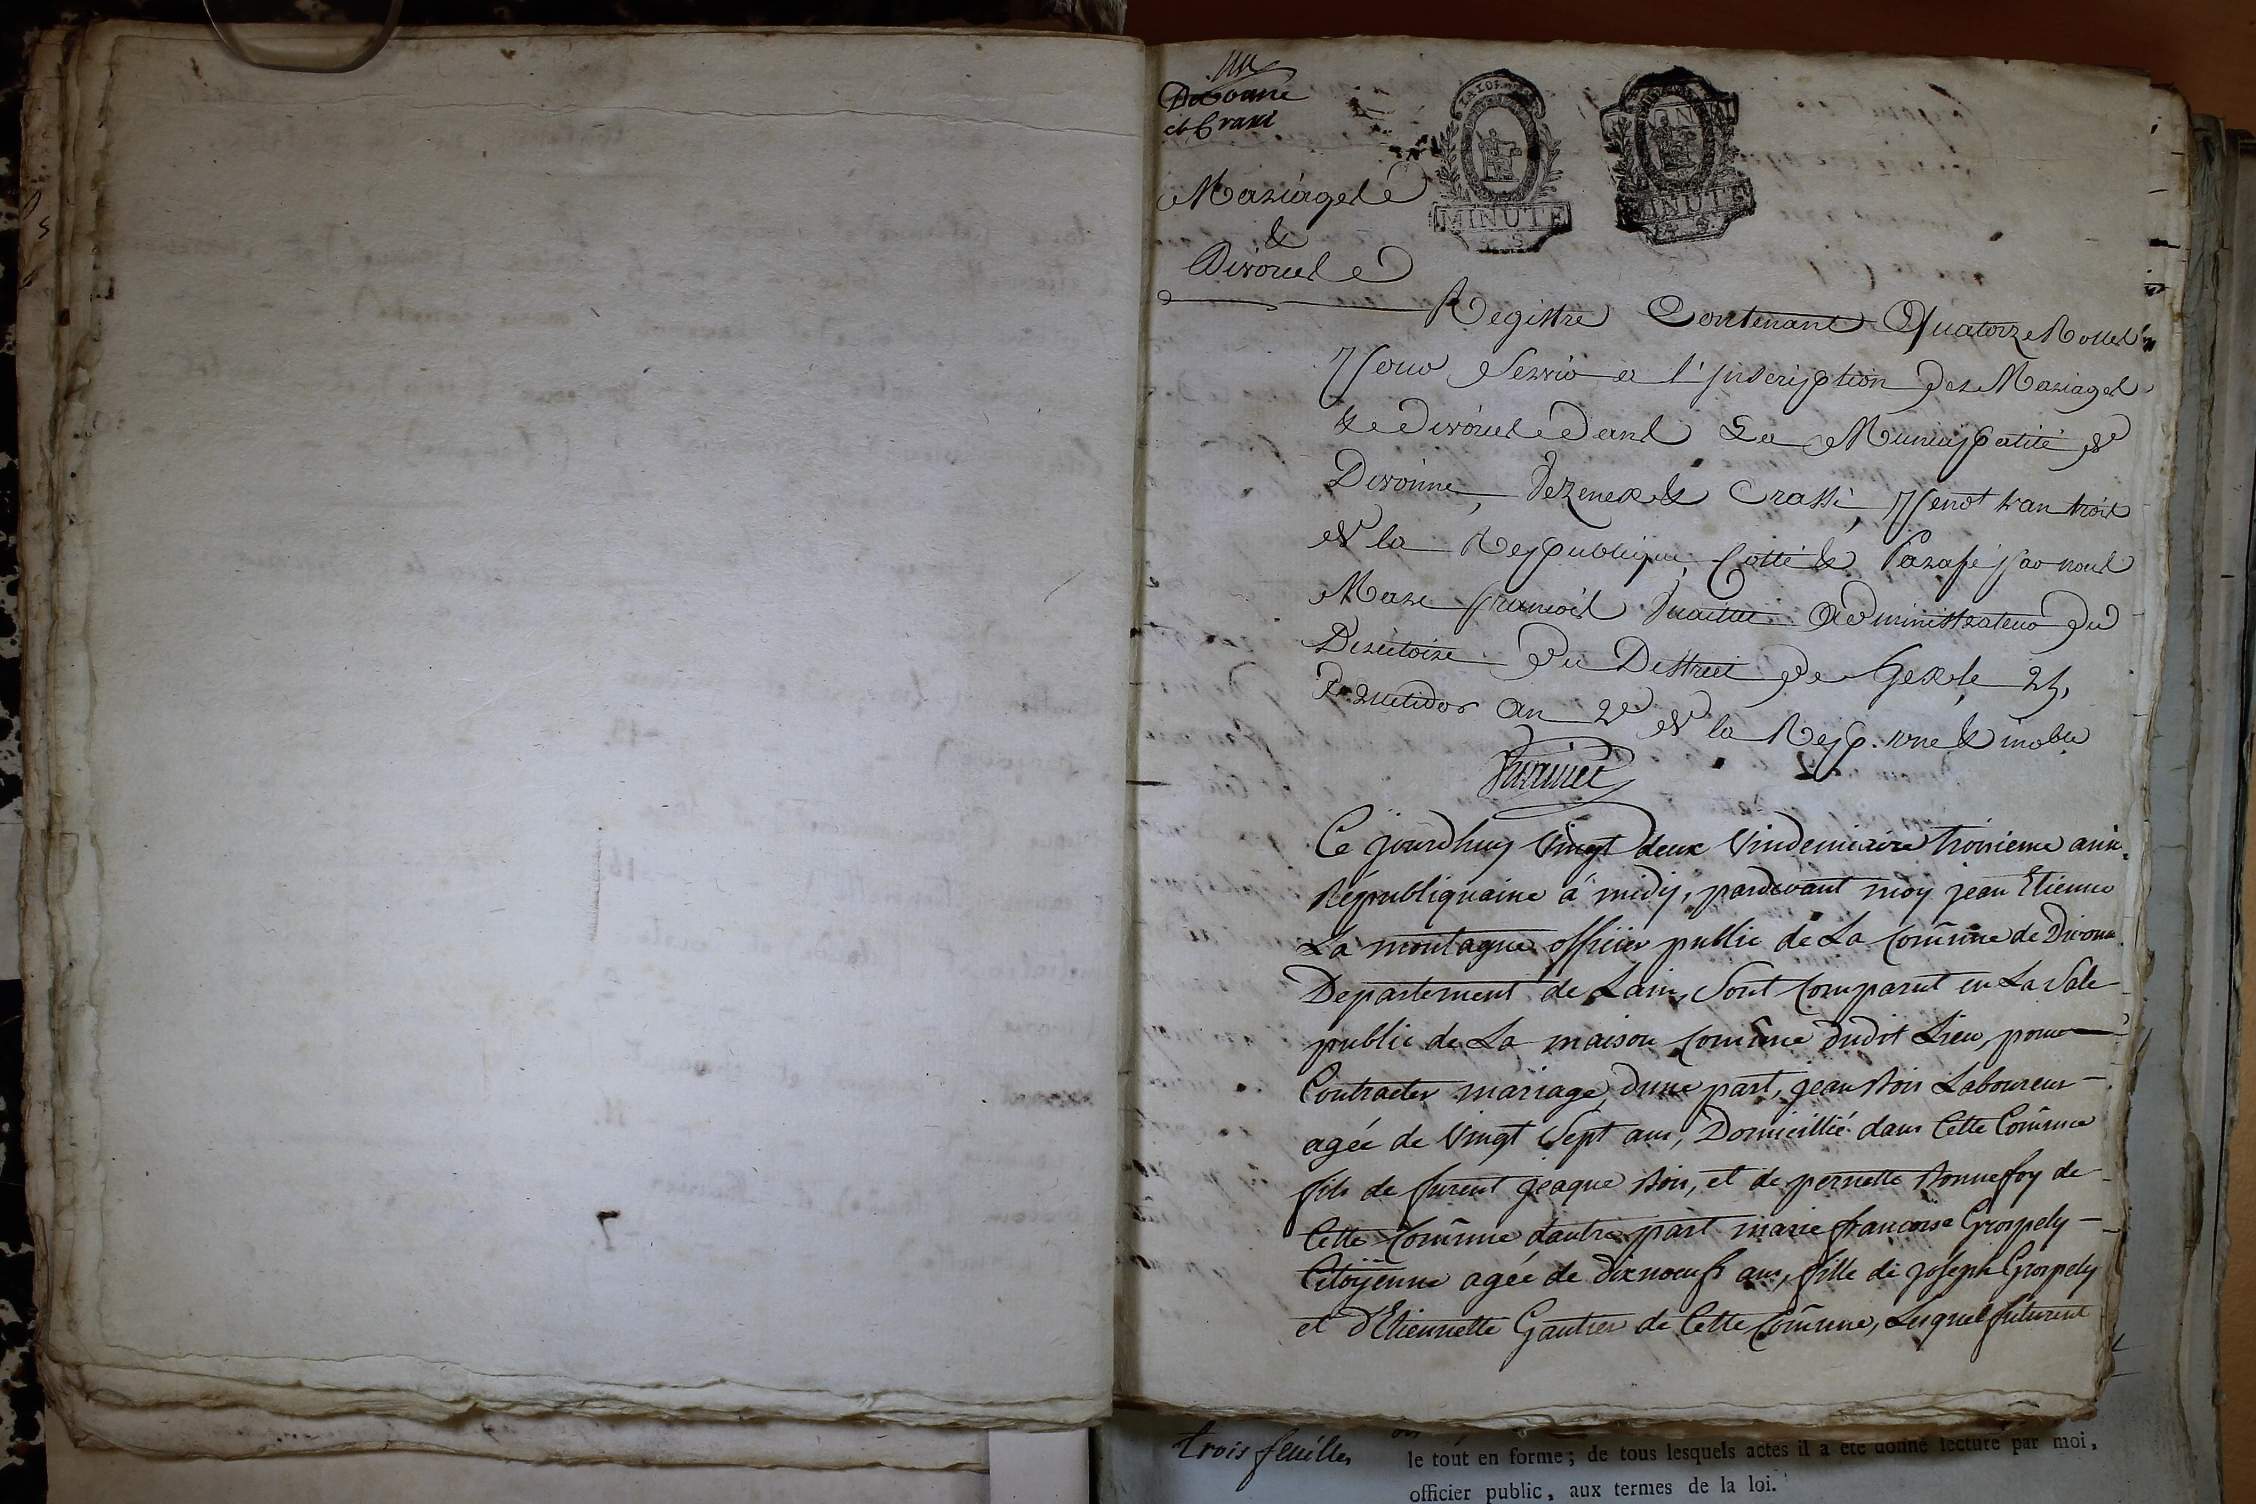 un
Divonne
et Crassi
Mariages
&
Divorces
MINUTE
MINUTE
Registre Contenant Quatorze Rolles
pour Servir a l'Inscription des Mariages
& Divorces dans La Municipalité de
Divonne, Vezenex & Crassi, pendt l'an trois
de la Republique, Cotté & Parafé par nous
Marc françois administrateur du
Directoire du District de Gex, le 25,
fructidor an 2e de la Rep. une & indble
Ce jourdhuy Vingt deux Vindemiaire troisieme anné
Républiquaine a midy, pardevant moy jean Etienne
La montagne officier public de La Com̃une de Divonne
Departement de Lain, Sont Comparut en La Sale
public de La maison Com̃une dudit Lieu, pour
Contracter mariage, dune part, jean Laboureur
agée de Vingt Sept ans, Domicillié dans Cette Com̃une
fils de furent jeaque et de pernette Bonnefoy de
Cette Com̃une dautre part marie francoise Grospely
Citoÿenne agée de dixnoeuf ans, fille de joseph Grospely
et d'Etiennette Gautier de Cette Com̃une, Lesquel futurent
7
trois feuilles
le tout en forme ; de tous lesquels actes il a été donné lecture par moi,
officier public, aux termes de la loi.